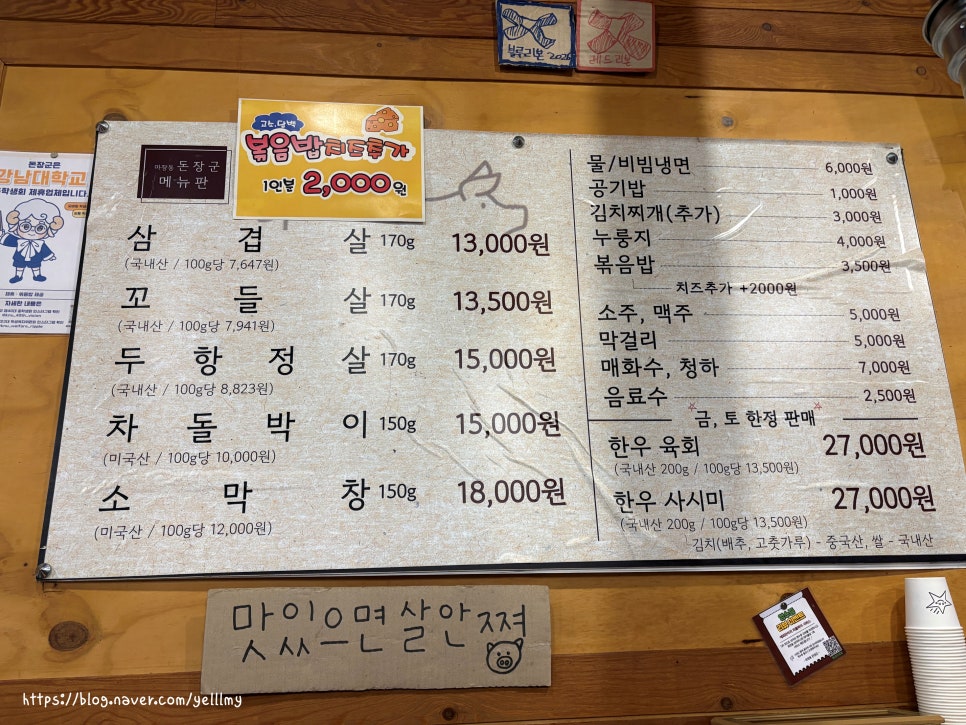 블루리본 2026
레드리본
돈장군은
강남대학교
학생회 제휴업체입니다
자세한 내용은
고소,담백
볶음밥치즈추가
1인분 2,000원
마장동 돈장군
메뉴판
삼겹살 170g 13,000원
(국내산 / 100g당 7,647원)
꼬들살 170g 13,500원
(국내산 / 100g당 7,941원)
두항정살 170g 15,000원
(국내산 / 100g당 8,823원)
차돌박이 150g 15,000원
(미국산 / 100g당 10,000원)
소막창 150g 18,000원
(미국산 / 100g당 12,000원)
물/비빔냉면 6,000원
공기밥 1,000원
김치찌개(추가) 3,000원
누룽지 4,000원
볶음밥 3,500원
치즈추가 +2000원
소주, 맥주 5,000원
막걸리 5,000원
매화수, 청하 7,000원
음료수 2,500원
금, 토 한정 판매
한우 육회 27,000원
(국내산 200g / 100g당 13,500원)
한우 사시미 27,000원
(국내산 200g / 100g당 13,500원)
김치(배추, 고춧가루) - 중국산, 쌀 - 국내산
맛있으면살안쪄
https://blog.naver.com/yelllmy